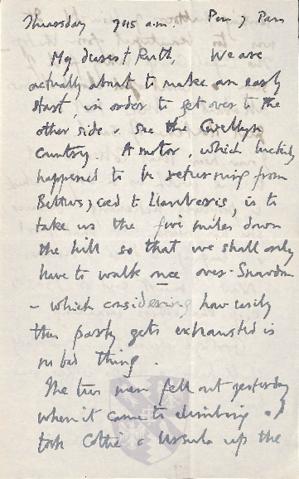 Thursday 7.45 a.m. Pen y Pass
My dearest Ruth, We are
actually about to make an early
start, in order to get over to the
other side & see the Gwellyn
Country. A motor, which luckily
happened to be returning from
Bettws-y-coed to Llanberis, is to
take us the five miles down
the hill so that we shall only
have to walk once over Snowdon
- which considering how easily
this party gets exhausted is
no bad thing.
The two men fell out yesterday
when it came to climbing & I
took Cottie & Ursula up the